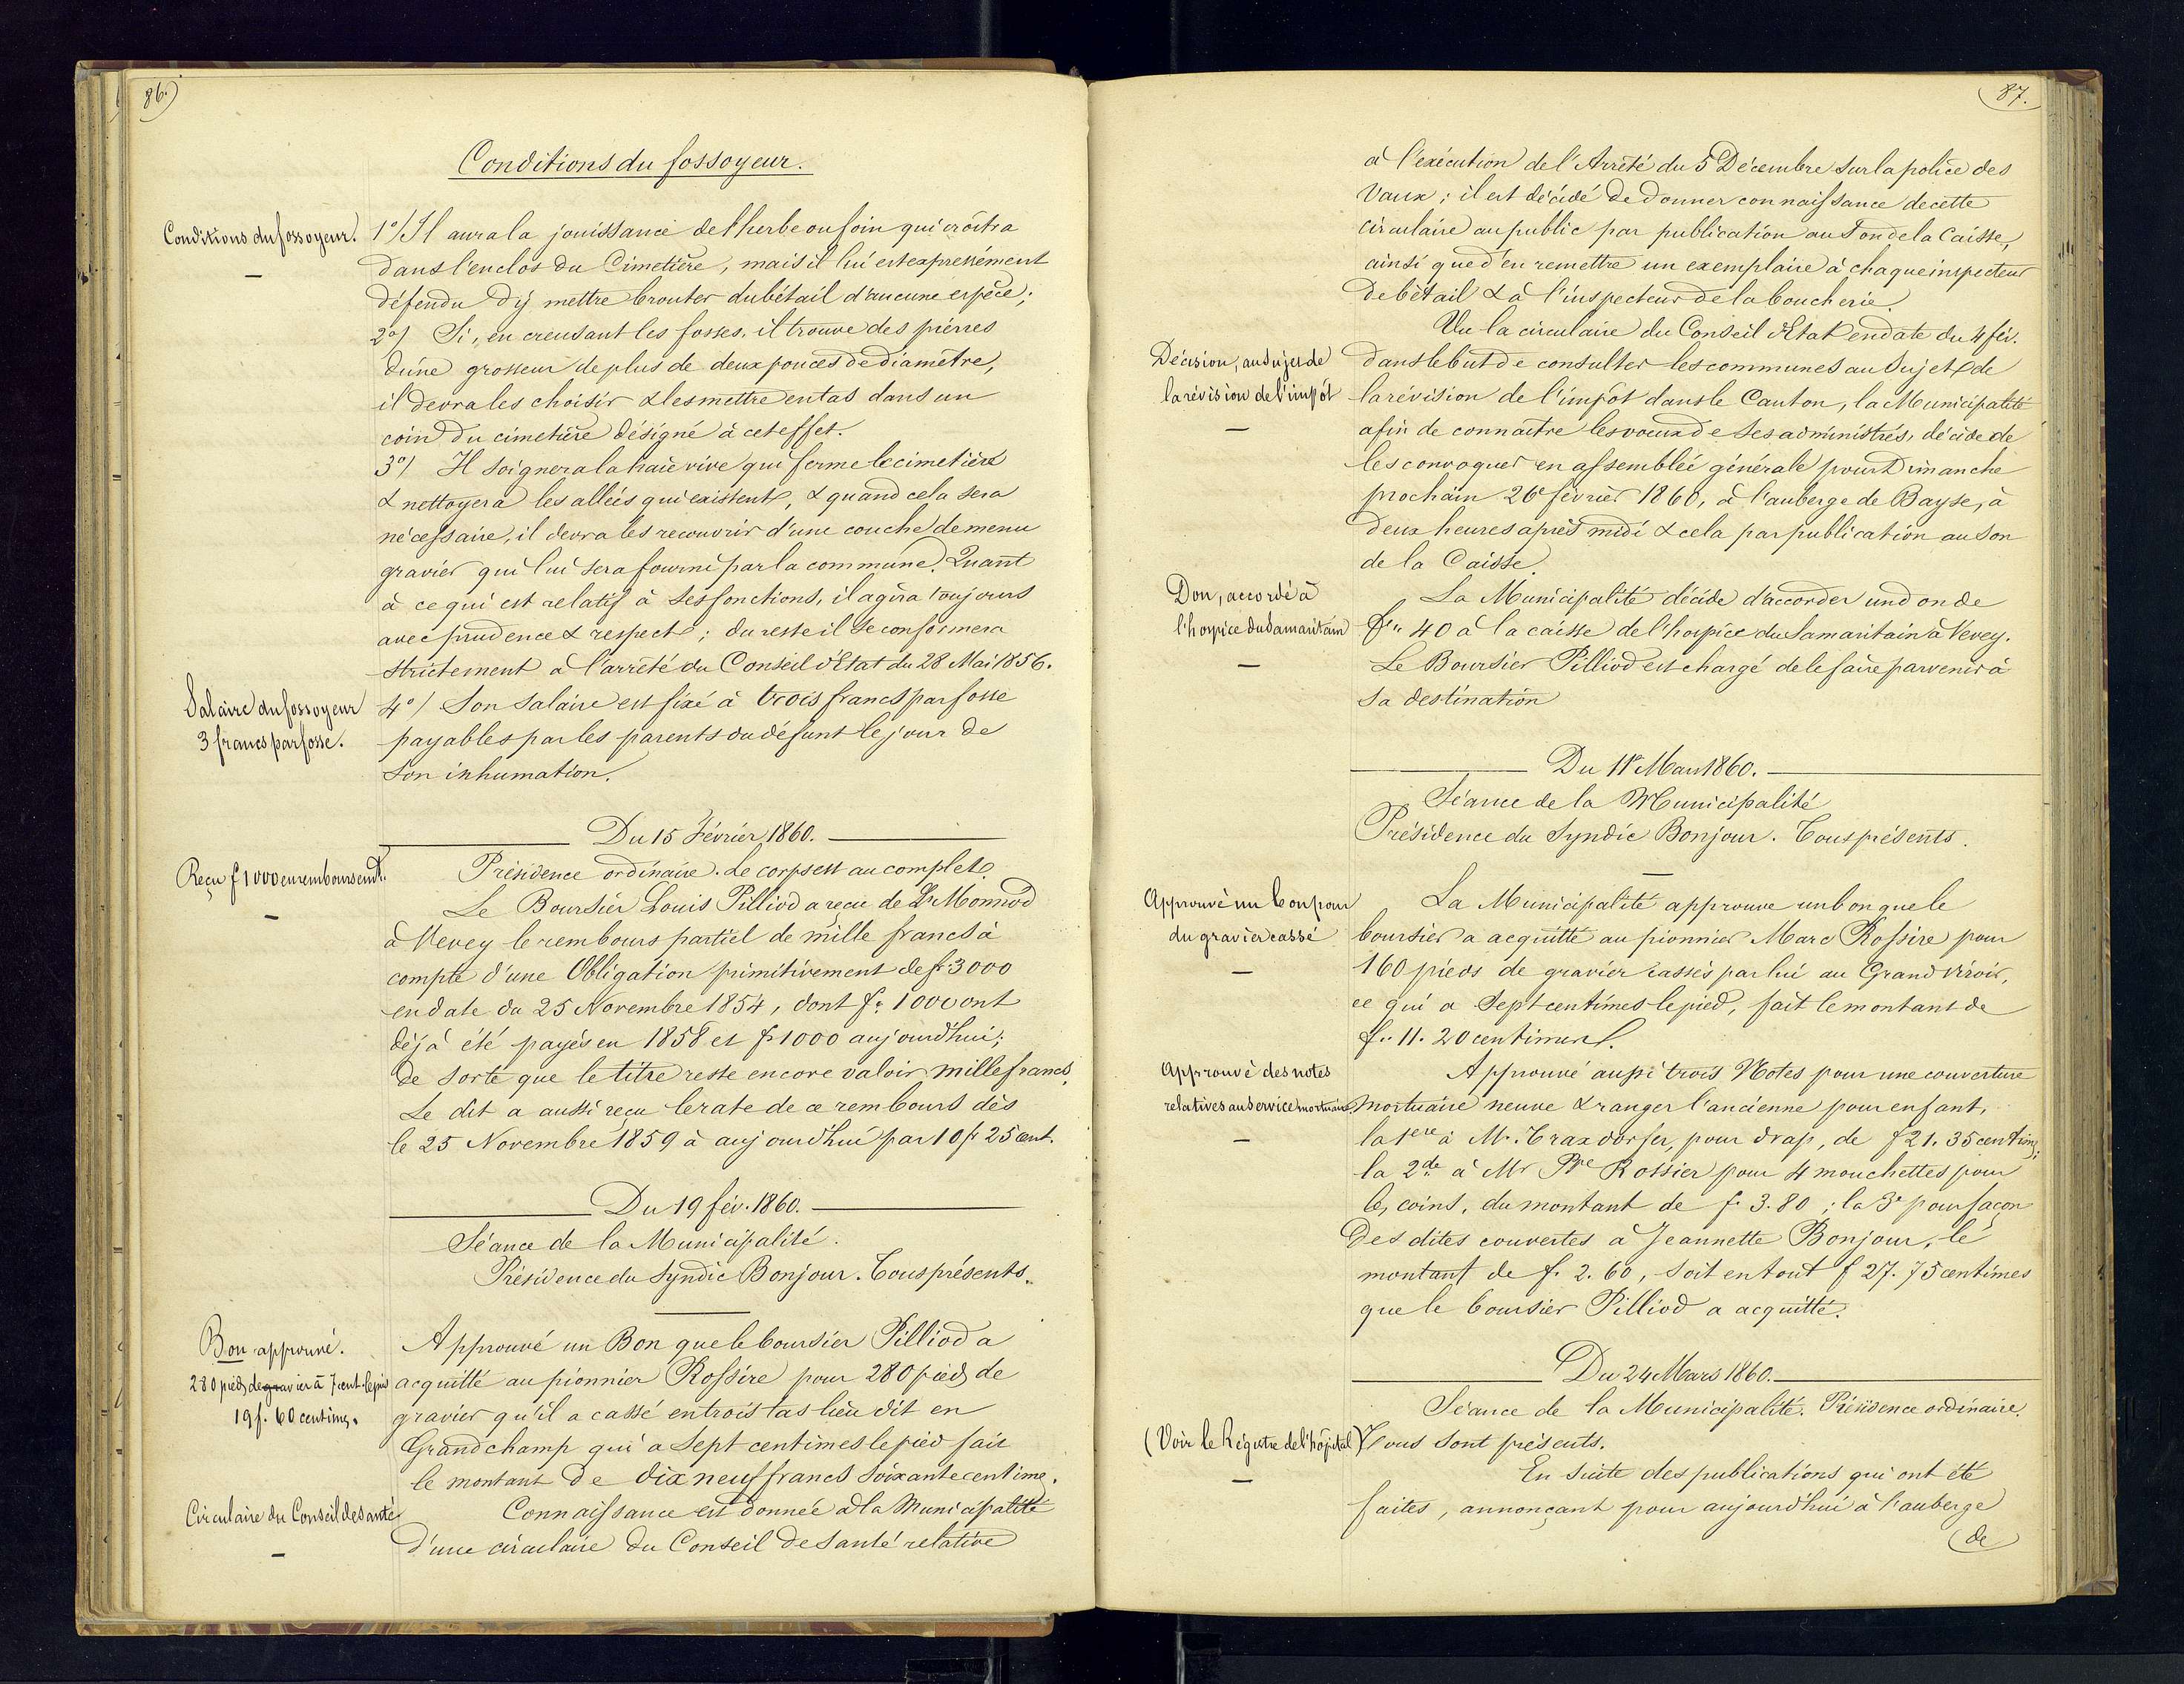 86.
Conditions du fossoyeur.
Conditions du fossoyeur.
1°/ Il aura la jouissance de l'herbe ou foin qui croîtra
dans l'enclos du Cimetière, mais il lui est expressément
défendu d'ÿ mettre brouter du bétail d'aucune espèce;
2°/ Si, en creusant les fosses, il trouve des pierres
d'une grosseur de plus de deux pouces de diamètre,
il devra les choisir & les mettre en tas dans un
coin du cimetière désigné à cet effet.
3°/ Il soignera la haie vive qui ferme le cimetière
& nettoyera les allées qui existent, & quand cela sera
nécessaire, il devra les recouvrir d'une couche de menu
gravier qui lui sera fourni par la commune. Quant
à ce qui est relatif à ses fonctions, il agira toujours
avec prudence & respect; du reste il se conformera
strictement à l'arrêté du Conseil d'Etat du 28 Mai 1856.
Salaire du fossoyeur
3 francs par fosse.
4°/ Son salaire est fixé à trois francs par fosse
payables par les parents du défunt le jour de
son inhumation.
Du 15 Février 1860.
Reçu f 1000 en remboursemt.
Présidence ordinaire. Le corps est au complet.
Le Boursier Louis Pilliod a reçu de Ls Monnod
à Vevey le rembours partiel de mille francs à
compte d'une Obligation primitivement de fr 3000
en date du 25 Novembre 1854, dont fr. 1000 ont
déjà été payés en 1858 et fr 1000 aujourd'hui;
de sorte que le titre reste encore valoir mille francs.
Le dit a aussi reçu le rate de ce rembours dès
le 25 Novembre 1859 à aujourd'hui par 10 fr 25 cent.
Du 19 fév. 1860.
Séance de la Municipalité.
Présidence du Syndic Bonjour. Tous présents.
Bon approuvé.
280 pieds de gravier à 7 cent. le pied
19 f. 60 centimes.
Approuvé un Bon que le boursier Pilliod a
acquitté au pionnier Rossire pour 280 pieds de
gravier qu'il a cassé en trois tas lieu dit en
Grandchamp qui a sept centimes le pied fait
le montant de dix neuf francs soixante centime.
Circulaire du Conseil de santé
Connaissance est donnée à la Municipalité
d'une circulaire du Conseil de Santé relative
87.
à l'exécution de l'Arrêté du 5 Décembre sur la police des
Vaux; il est décidé de donner connaissance de cette
circulaire au public par publication au Son de la Caisse,
ainsi que d'en remettre un exemplaire à chaque inspecteur
de bétail & à l'inspecteur de la boucherie.
Vu la circulaire du Conseil d'Etat en date du 4 fév.
Décision, au sujet de
la révision de l'impôt
dans le but de consulter les communes au sujet de
la révision de l'impôt dans le Canton, la Municipalité
afin de connaître les voeux de ses administrés, décide de
les convoquer en assemblée générale pour Dimanche
prochain 26e février 1860, à l'auberge de Bayse, à
deux heures après midi & cela par publication au Son
de la Caisse.
Don, accordé à
l'hospice du Samaritain
La Municipalité décide d'accorder un don de
Fr. 40 à la caisse de l'hospice du Samaritain à Vevey.
Le Boursier Pilliod est chargé de le faire parvenir à
sa destination
Du 11e Mars 1860.
Séance de la Municipalité
Présidence du Syndic Bonjour. Tous présents.
Approuvé un bon pour
du gravier cassé
La Municipalité approuve un bon que le
boursier a acquitté au pionnier Marc Rossire pour
160 pieds de gravier cassés par lui au GrandViroir,
ce qui a Sept centimes le pied, fait le montant de
f. 11. 20 centimes.
Approuvé des notes
relatives au service mortuaire
Approuvé aussi trois Notes pour une couverture
mortuaire neuve & ranger l'ancienne pour enfant,
la 1ere à Mr. Traxdorfer, pour drap, de f 21. 35 centimes;
la 2de à Mr Pre Rossier pour 4 mouchettes pour
les coins, du montant de f. 3. 80; la 3e pour façon
des dites couvertes à Jeannette Bonjour, le
montant de f. 2. 60, soit en tout f 27. 75 centimes
que le boursier Pilliod a acquitté.
Du 24 Mars 1860.
Séance de la Municipalité. Présidence ordinaire.
(Voir le Régistre de l'hôpital)
Tous sont présents.
En suite des publications qui ont été
faites, annonçant pour aujourd'hui à l'auberge
de